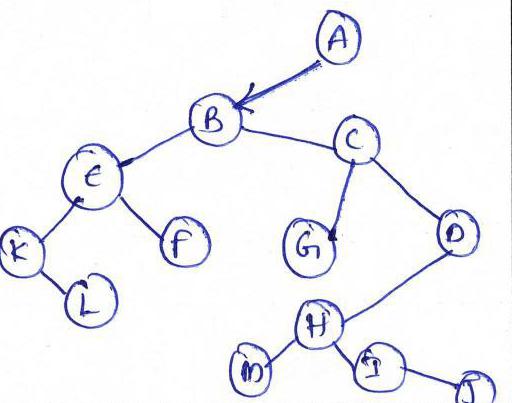 A
B
C
E
K
F
G
D
L
H
M
I
J